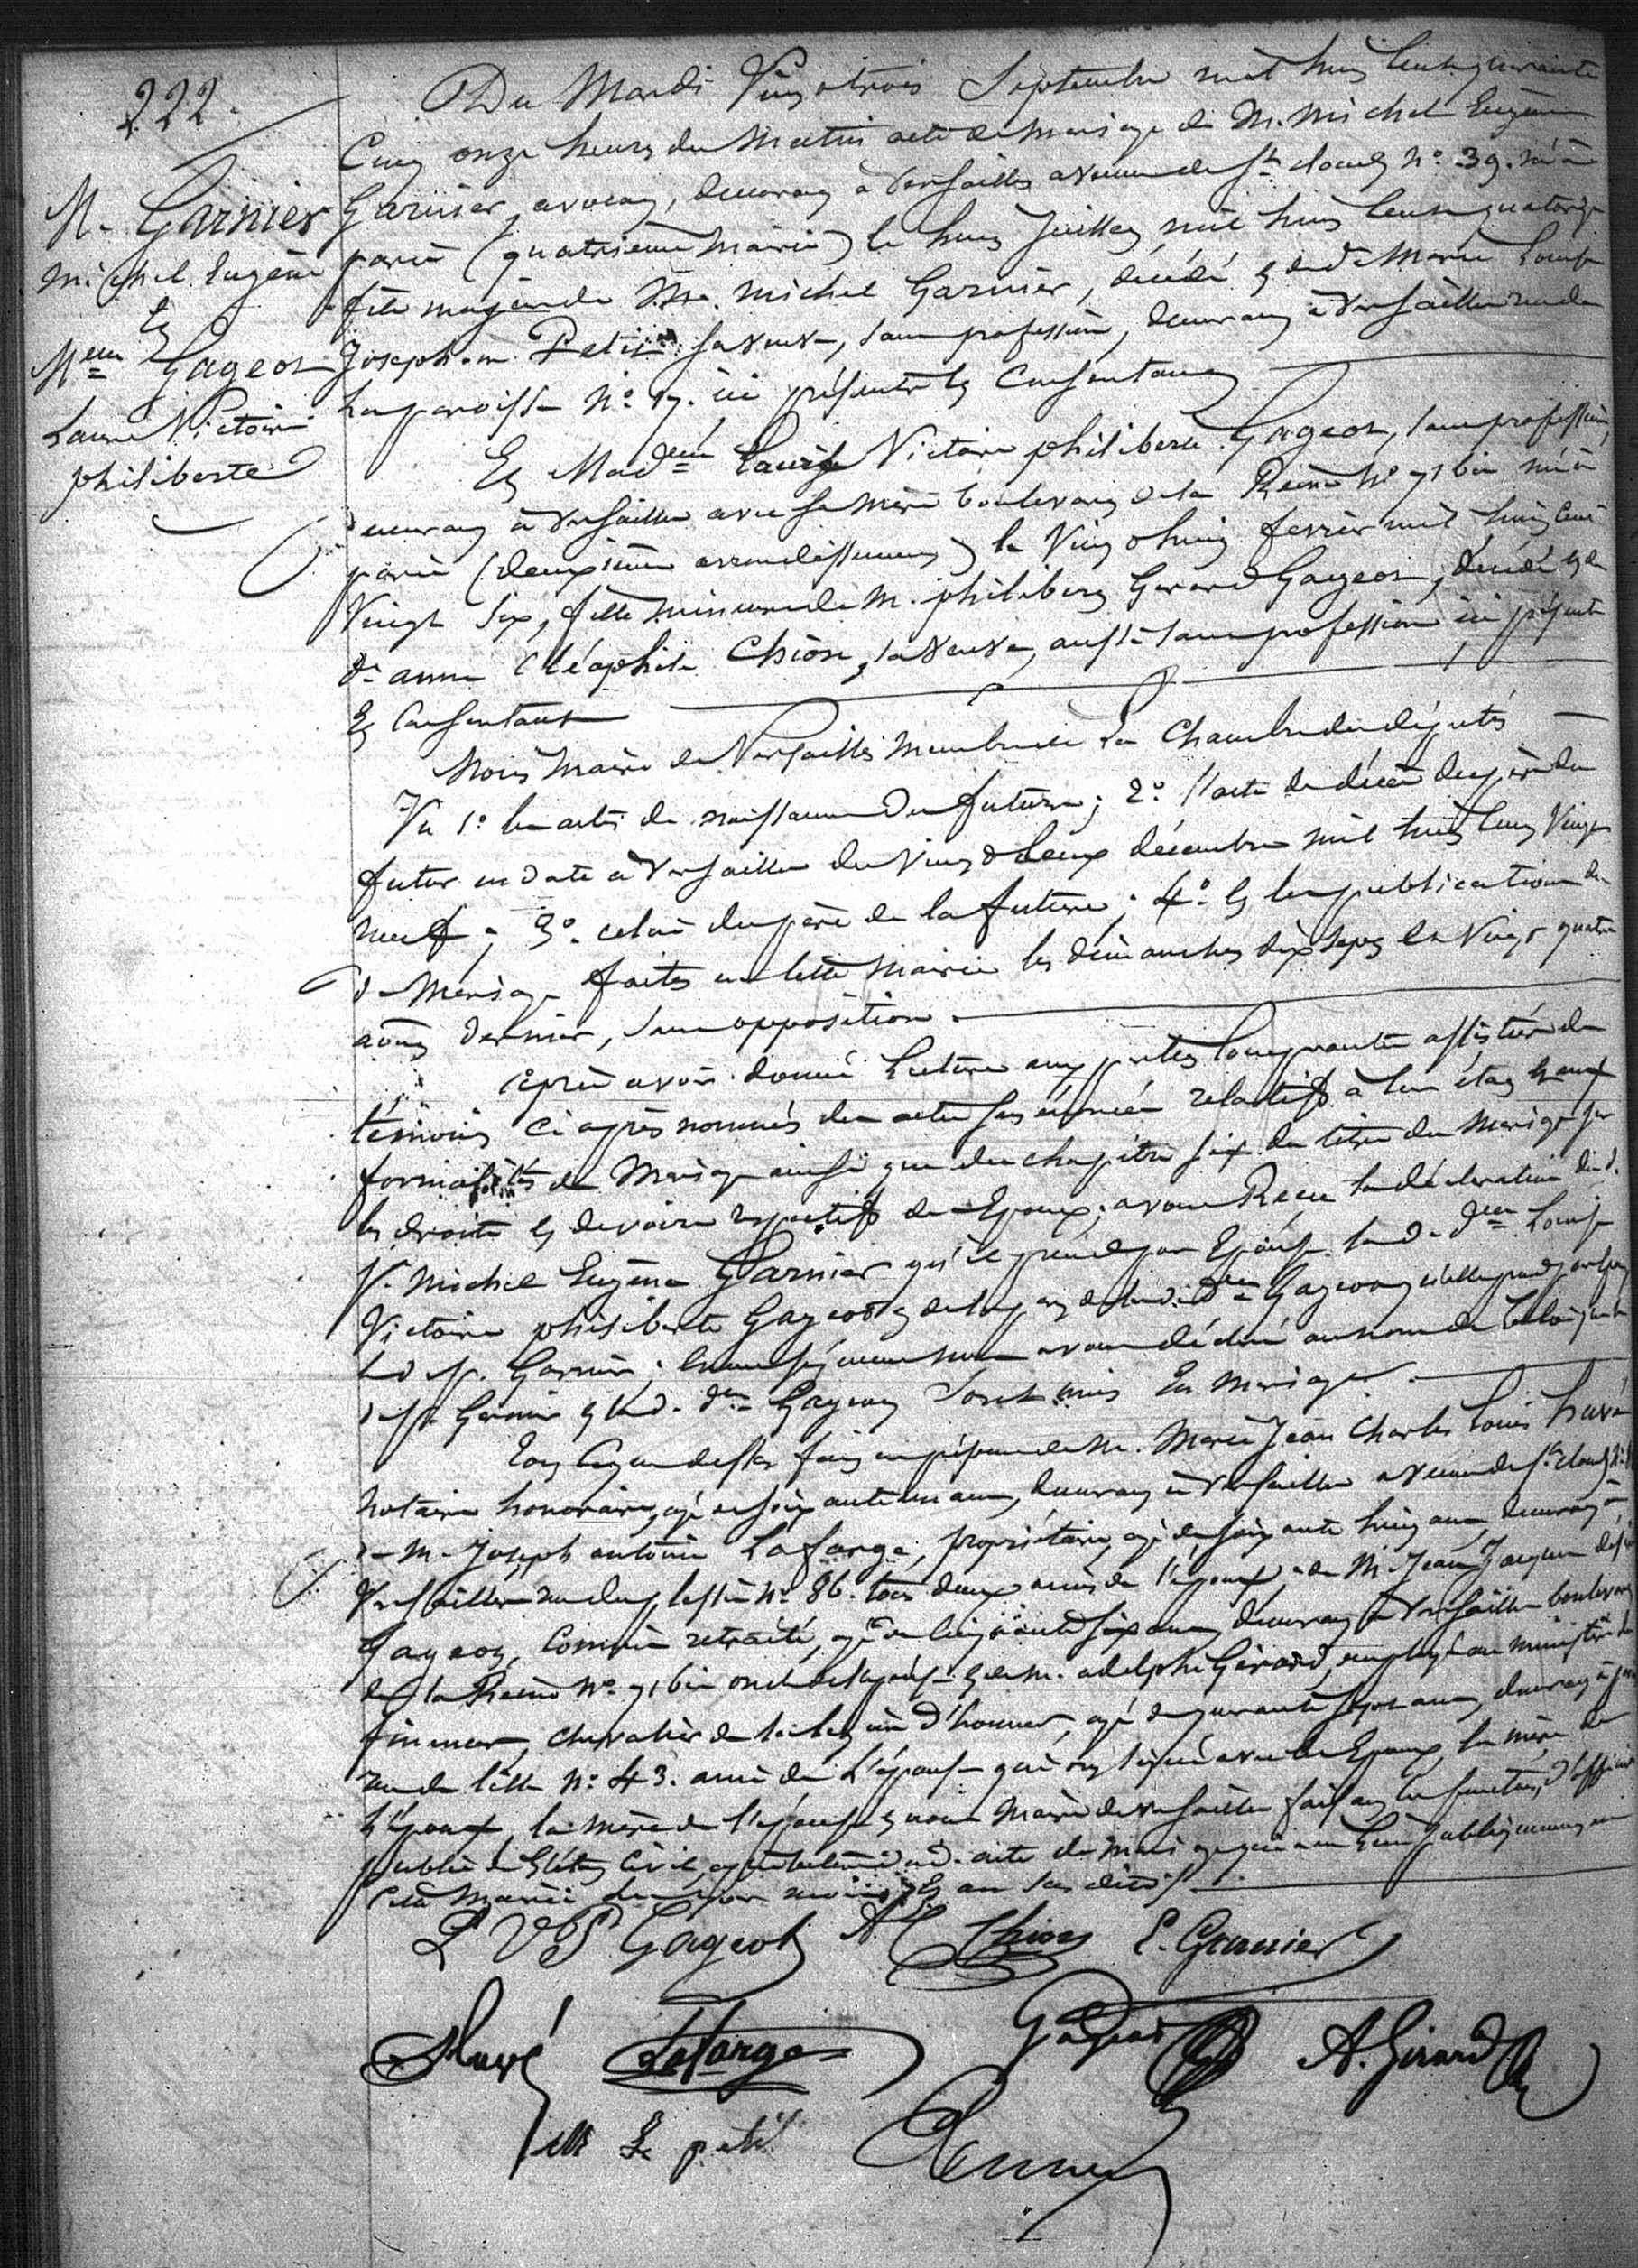 222.
M. Garnier
Michel Eugène
Et
Melle Gageot
Laure Victoire
philiberte
Du Mardi Vingt trois Septembre mil huit cent quarante
Cinq onze heures du Matin acte de mariage de M. Michel Eugène
Garnier, avocat, demeurant à Versailles avenue de St cloud no. 39. né à
paris (quatrième Mairie) le huit Juillet mil huit cent quatorze
fils majeur de M. Michel Garnier, décédé et de de Marie Louise
Josephine Petit sa veuve, sans profession, demeurant à Versailles rue de
la paroisse No. 17. ici présente et Consentante
Et Madelle Louise Victoire philiberte Gageot, sans profession,
demeurant à Versailles avec sa mère boulevard de la Reine No 71 bis née à
paris (deuxième arrondissement) le Vingt huit février mil huit cent
Vingt Six, fille mineure de M. philibert Gerard Gageot, décédé et de
de anne Cléophile Chion, sa veuve, aussi sans profession ici présente
Et Consentante
Nous Maire de Versailles Membre de la Chambre des députés
Vu 1o les actes de naissance des futurs; 2o l'acte de décès du père du
futur en date à Versailles du Vingt deux décembre mil huit cent Vingt
neuf; 3o. celui du père de la future; 4o et les publications de
de Mariage faites en cette Mairie les dimanches dix sept et Vingt quatre
août dernier, sans opposition.
après avoir donné Lecture aux parties comparantes assistées des
témoins ci après nommés des actes sus énoncés relatifs à leur état et aux
formalités du Mariage ainsi que du chapitre six du titre du Mariage sur
les droits et devoirs respectifs des Epoux; avons Reçu la déclaration dud.
Sr. Michel Eugène Garnier qu'il prend pour Epouse lad. delle Louise
Victoire philiberte Gageot et de la part de lad. delle Gageot qu'elle prend pour Epoux
led. Sr. Garnier; avons déclaré au nom de la loi que led.
Sr. Garnier et lad. delle Gageot Sont unis En Mariage.
Tout ce que dessus fait en présence de M. Marie Jean Charles Louis havé
notaire honoraire, agé de soixante un ans, demeurant à Versailles avenue de St cloud
de M. Joseph antoine Lafarge, propriétaire, agé de soixante huit ans, demeurant à
Versailles rue duplessis No. 86. tous deux amis de l'époux; de M. Jean Jacques
Gageot, Commis retraité, agé de Cinquante six ans, demeurant à Versailles boulevard
de la Reine No. 71 bis oncle de l'épouse et de M. adolphe Gérard, employé au ministère des
finances, chevalier de la légion d'honneur, agé de quarante sept ans, demeurant à paris
rue de Lille No. 43. ami de L'épouse qui ont signé avec les Epoux, la mère de
L'époux, la mère de l'épouse et nous Maire de Versailles faisant les fonctions d'officier
public de l'état Civil, après lecture acte de mariage publiquement en
cette Mairie les jour mois Et an sus dits.
L V P Gageot A C Chion E. Garnier
Havé Lafarge Gageot A. Girard
Petit